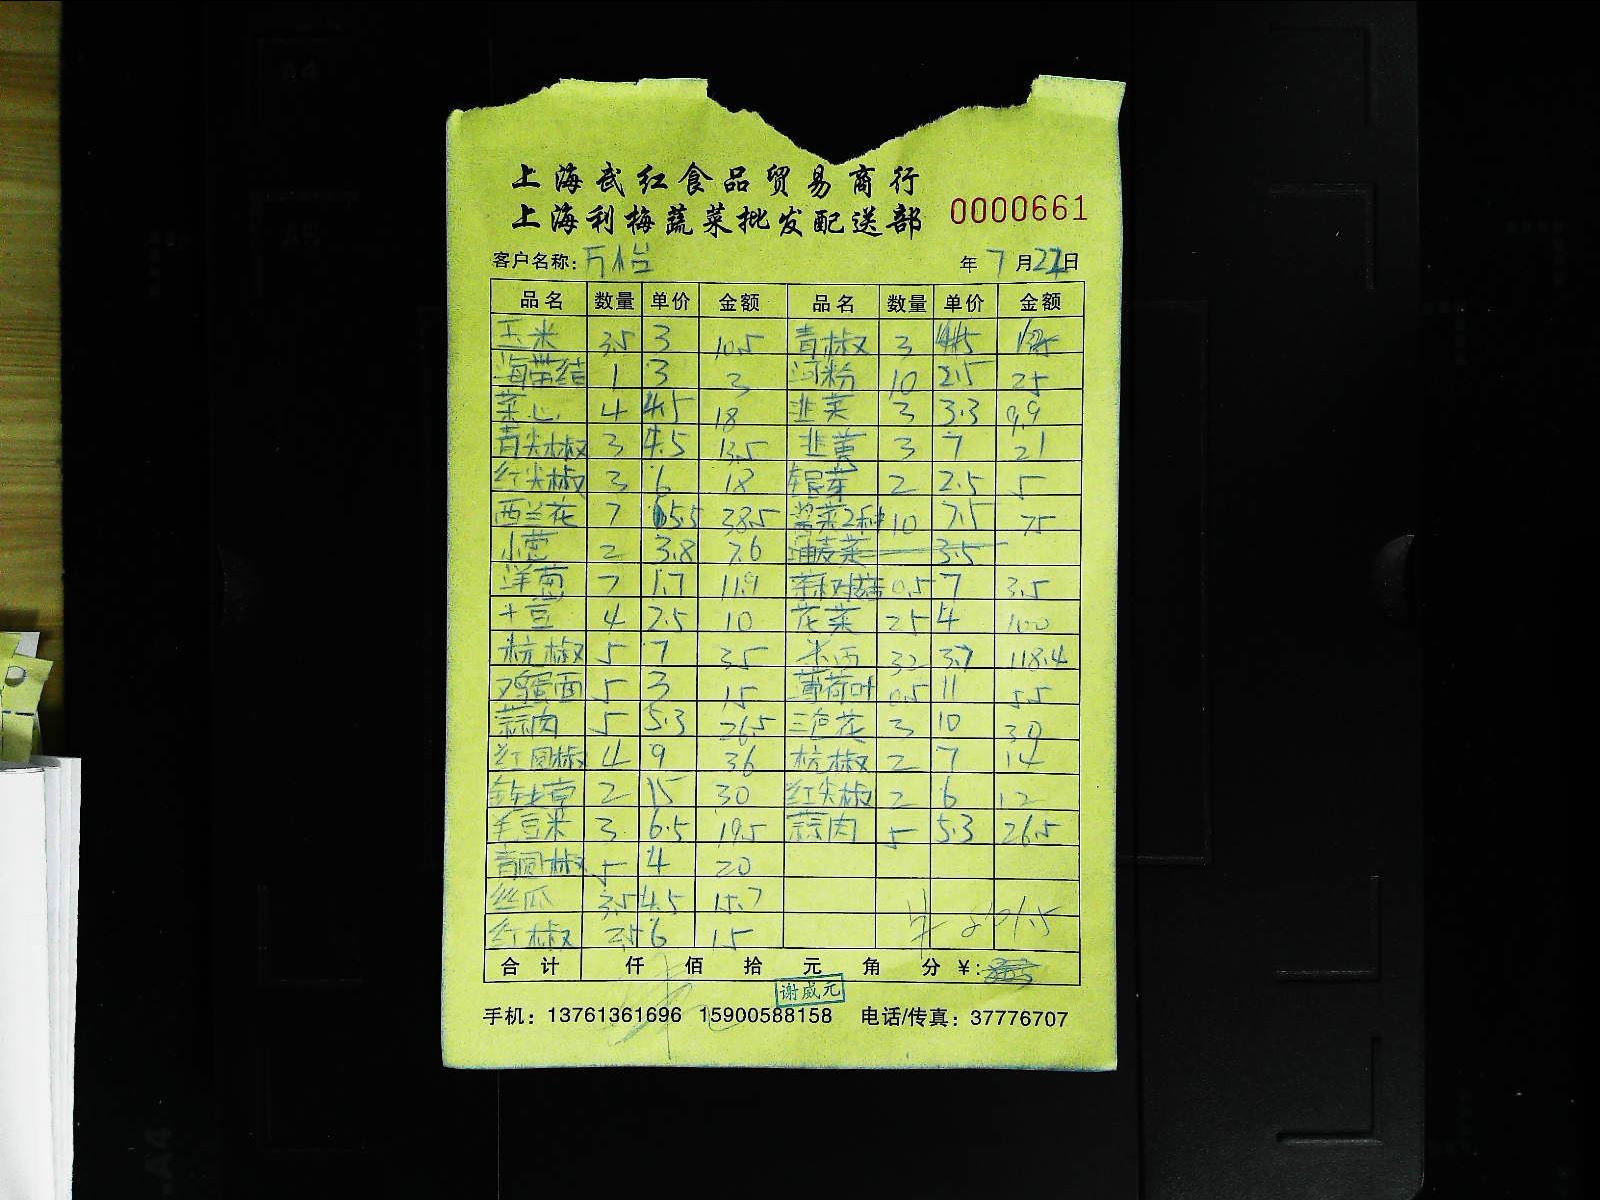 上海武红食品贸易商行
上海利梅蔬菜批发配送部 0000661
客户名称: 万怡 年 7 月 日
品名 数量 单价 金额 品名 数量 单价 金额
玉米 3.5 3 10.5 青椒 3 4.5
海带结 1 3 3 河粉 10 2.5 25
菜心 4 4.5 18 韭菜 3 3.3 9.9
青尖椒 3 4.5 13.5 韭黄 3 7 21
红尖椒 3 6 18 银芽 2 2.5 5
西兰花 7 5.5 38.5 浆菜2种 10 7.5 75
小葱 2 3.8 7.6 油麦菜 3.5
洋葱 7 1.7 11.9 0.5 7 3.5
土豆 4 2.5 10 花菜 25 4 100
杭椒 5 7 35 米西 32 3.7 118.4
鸡蛋面 5 3 15 薄荷叶 0.5 11 5.5
蒜肉 5 5.3 26.5 三色花 3 10 30
红圆椒 4 9 36 杭椒 2 7 14
2 15 30 红尖椒 2 6 12
毛豆米 3 6.5 19.5 蒜肉 5 5.3 26.5
青圆椒 5 4 20
丝瓜 3.5 4.5 15.7
红椒 2.5 6 15
合计 仟 佰 拾 元 角 分 ¥:
谢威元
手机: 13761361696 15900588158 电话/传真: 37776707